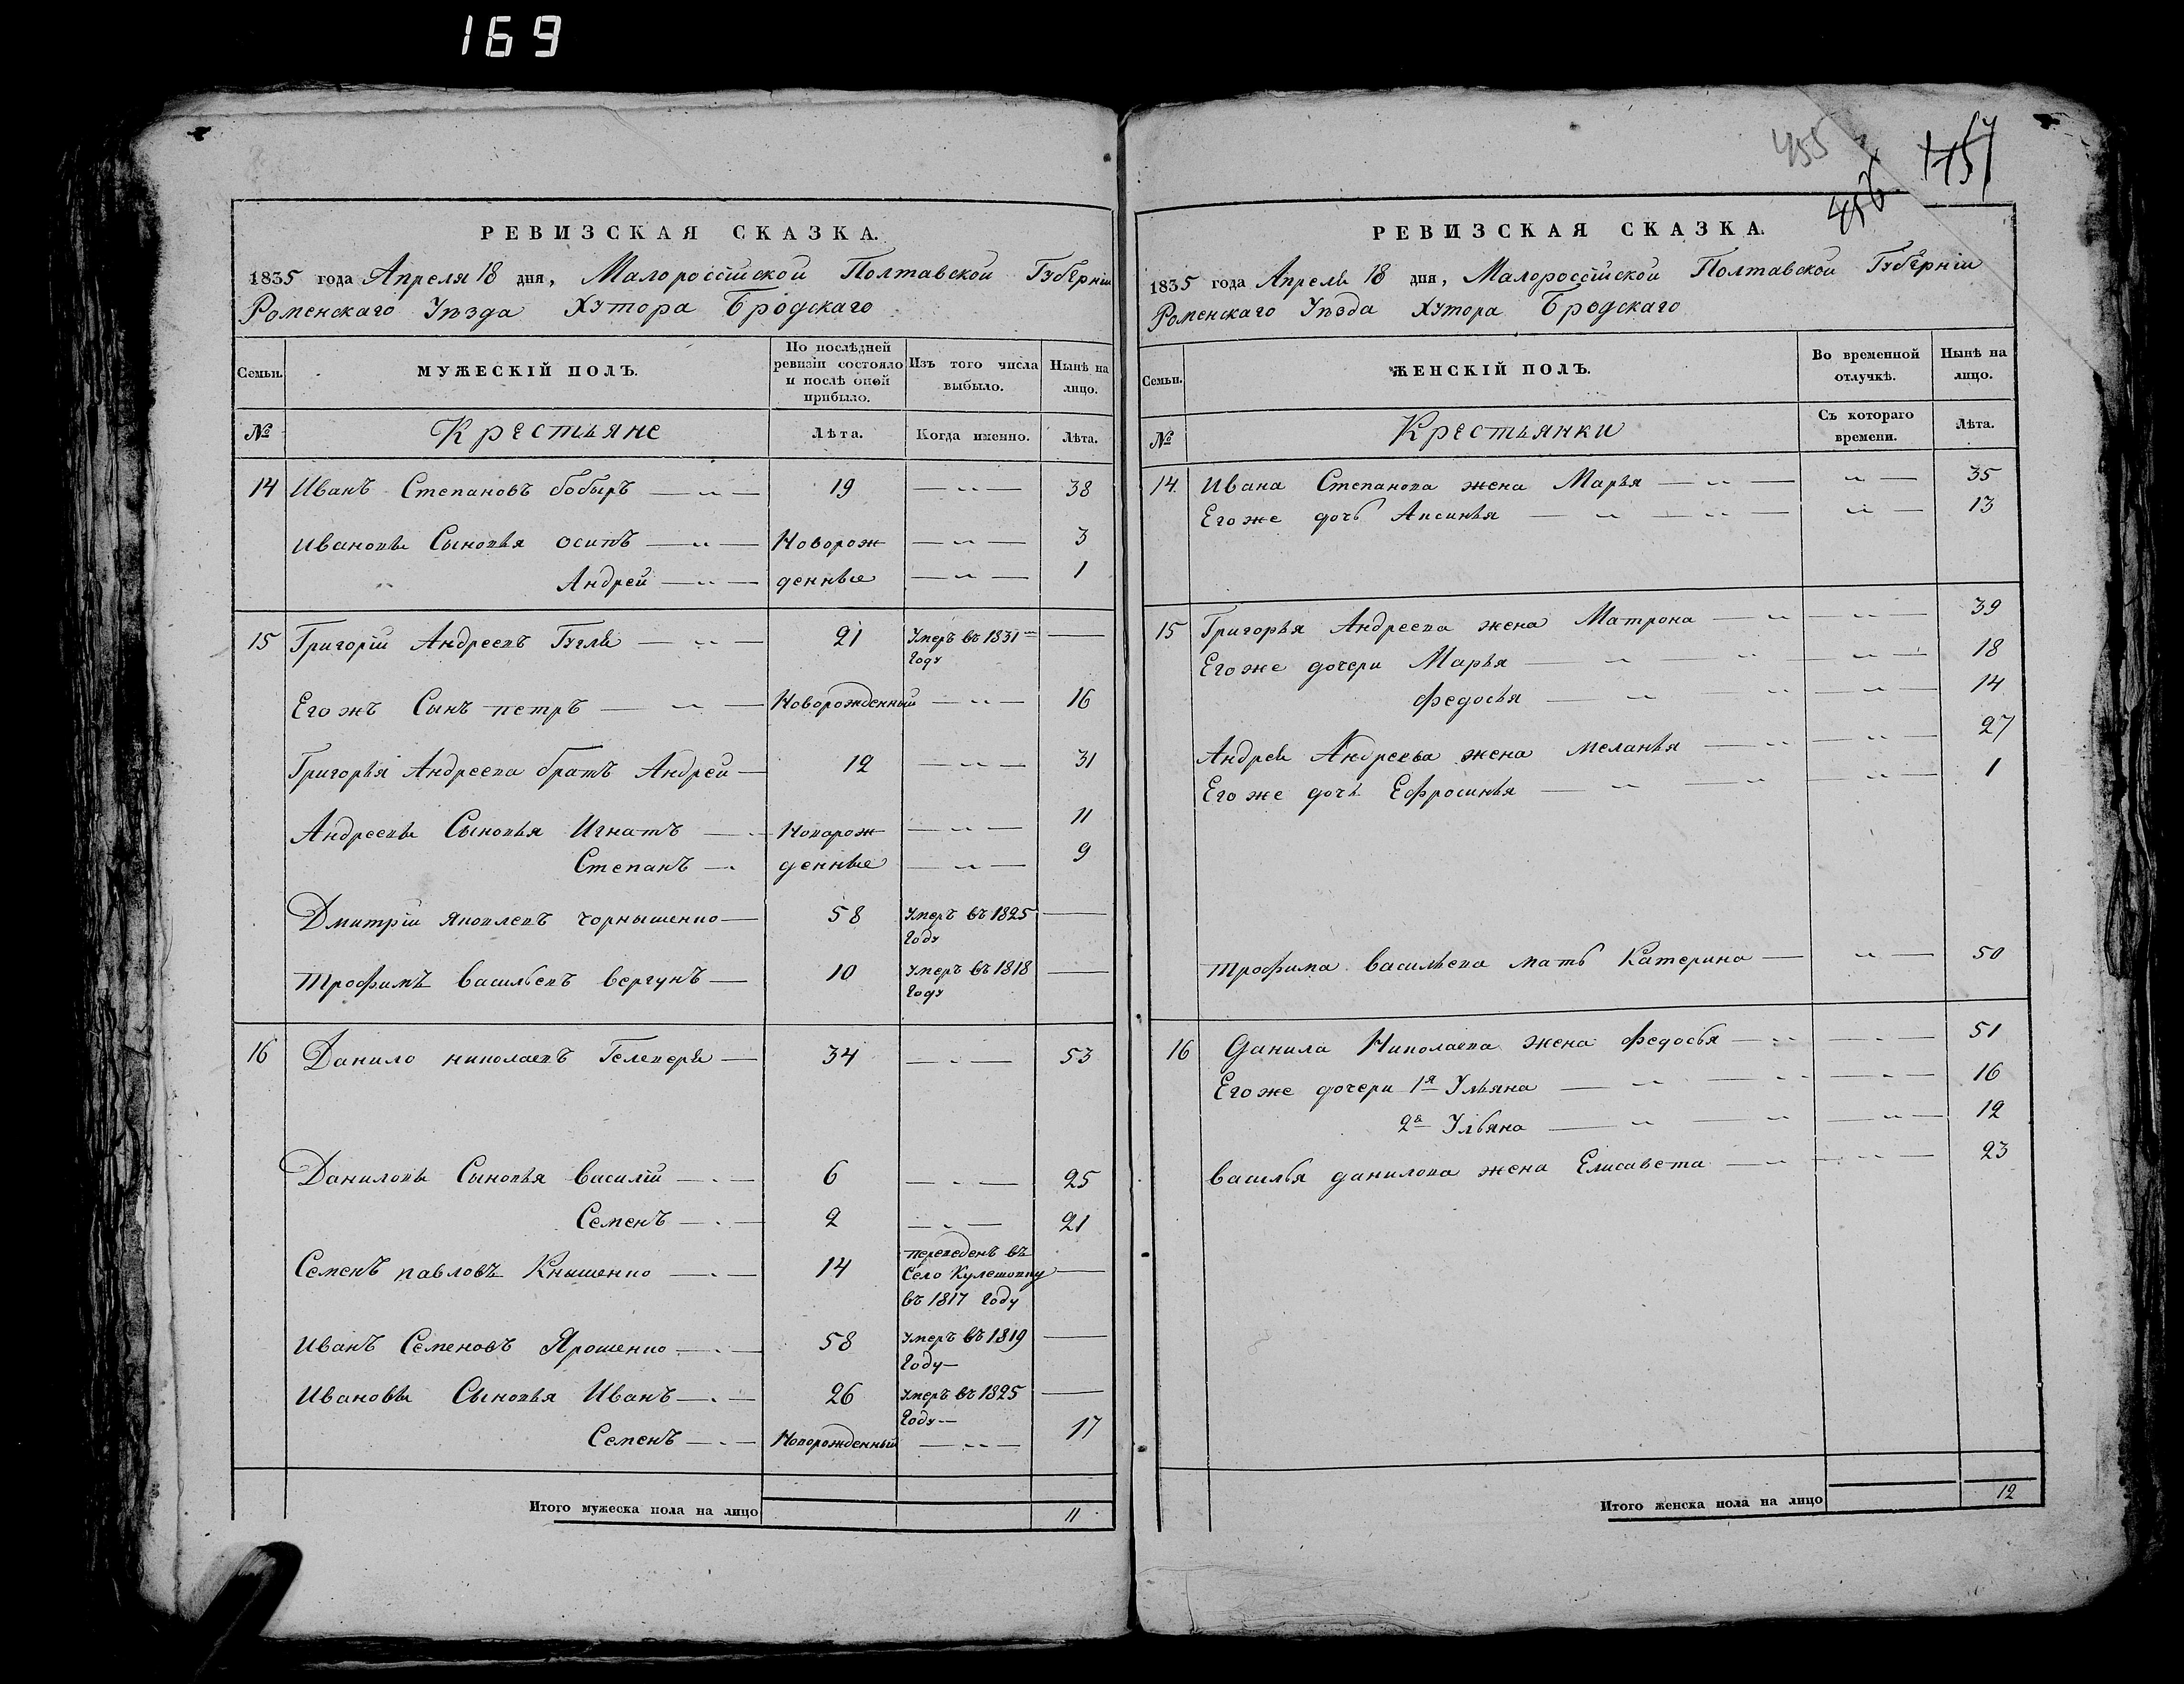 169
455
456
457
РЕВИЗСКАЯ СКАЗКА.
1835 года Апреля 18 дня, Малороссійской Полтавской Губерніи
Роменскаго Уѣзда Хутора Бродскаго
Семьи. МУЖЕСКІЙ ПОЛЪ. По послѣдней ревизіи состояло и послѣ оной прибыло. Изъ того числа выбыло. Нынѣ на лицо.
№ Крестьяне Лѣта. Когда именно. Лѣта.
14 Иванъ Степановъ бобыръ — " — 19 — " — 38
Ивановы Сыновья осипъ — " — Новорож — " — 3
Андрей — " — денные — " — 1
15 Григорій Андреевъ Гугля — " — 21 Умеръ въ 1831м —
Году
Егожъ Сынъ петръ — " — Новорожденный — " — 16
Григорья Андреева братъ Андрей — 12 — " — 31
Андреевы Сыновья Игнатъ — " — Новорож — " — 11
Степанъ — " денные — " — 9
Дмитрій яковлевъ чорнышенко — 58 Умеръ въ 1825 —
Году
трофимъ васильевъ вергунъ — 10 Умеръ въ 1818 —
Году
16 Данило николаевъ Гелеверя — 34 — " — 53
Даниловы Сыновья василій — " — 6 — " — 25
Семенъ — " — 2 — " — 21
Семенъ павловъ Кнышенко — " — 14 переведенъ въ —
Село Кулешовку
въ 1817 Году
Иванъ Семеновъ Ярошенко — " — 58 Умеръ въ 1819 —
Году —
Ивановы Сыновья Иванъ — " — 26 Умеръ въ 1825 —
Году —
Семенъ — " — Новорожденный — " — 17
Итого мужеска пола на лицо 11
РЕВИЗСКАЯ СКАЗКА.
1835 года Апреля 18 дня, Малороссійской Полтавской Губерніи
Роменскаго Уѣзда Хутора Бродскаго
Семьи. ЖЕНСКІЙ ПОЛЪ. Во временной отлучкѣ. Нынѣ на лицо.
№ Крестьянки Съ котораго времени. Лѣта.
14 Ивана Степанова жена Марья — " — " — 35
Его же дочь Аксинья — " — " — " — 13
15 Григорья Андреева жена Матрона — " — " — 39
Его же дочери Марья — " " — " — 18
федосья — " " — " — 14
Андрея Андреева жена меланья — " — " — 27
Его же дочь Ефросинья — " — " — " — 1
трофима васильева мать Катерина — " — 50
16 Данила Николаева жена федосья — " — " — 51
Его же дочери 1я Ульяна — " — " — " — 16
2я Ульяна — " — " — " — 12
василья данилова жена Елисавета — " — " — 23
Итого женска пола на лицо 12